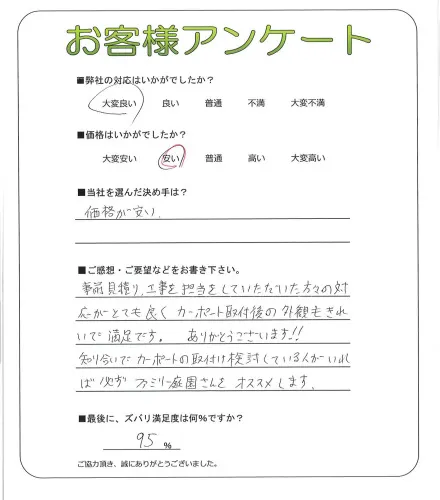 お客様アンケート
■弊社の対応はいかがでしたか?
大変良い 良い 普通 不満 大変不満
■価格はいかがでしたか?
大変安い 安い 普通 高い 大変高い
■当社を選んだ決め手は?
価格が安い.
■ご感想・ご要望などをお書き下さい。
事前見積り、工事を担当をしていただいた方々の対
応がとても良く カーポート取付後の外観もきれ
いで満足です。 ありがとうございます!!
知り合いでカーポートの取付け検討している人がいれ
ば 必ず ファミリー庭園さんを オススメします.
■最後に、ズバリ満足度は何%ですか?
95 %
ご協力頂き、誠にありがとうございました。